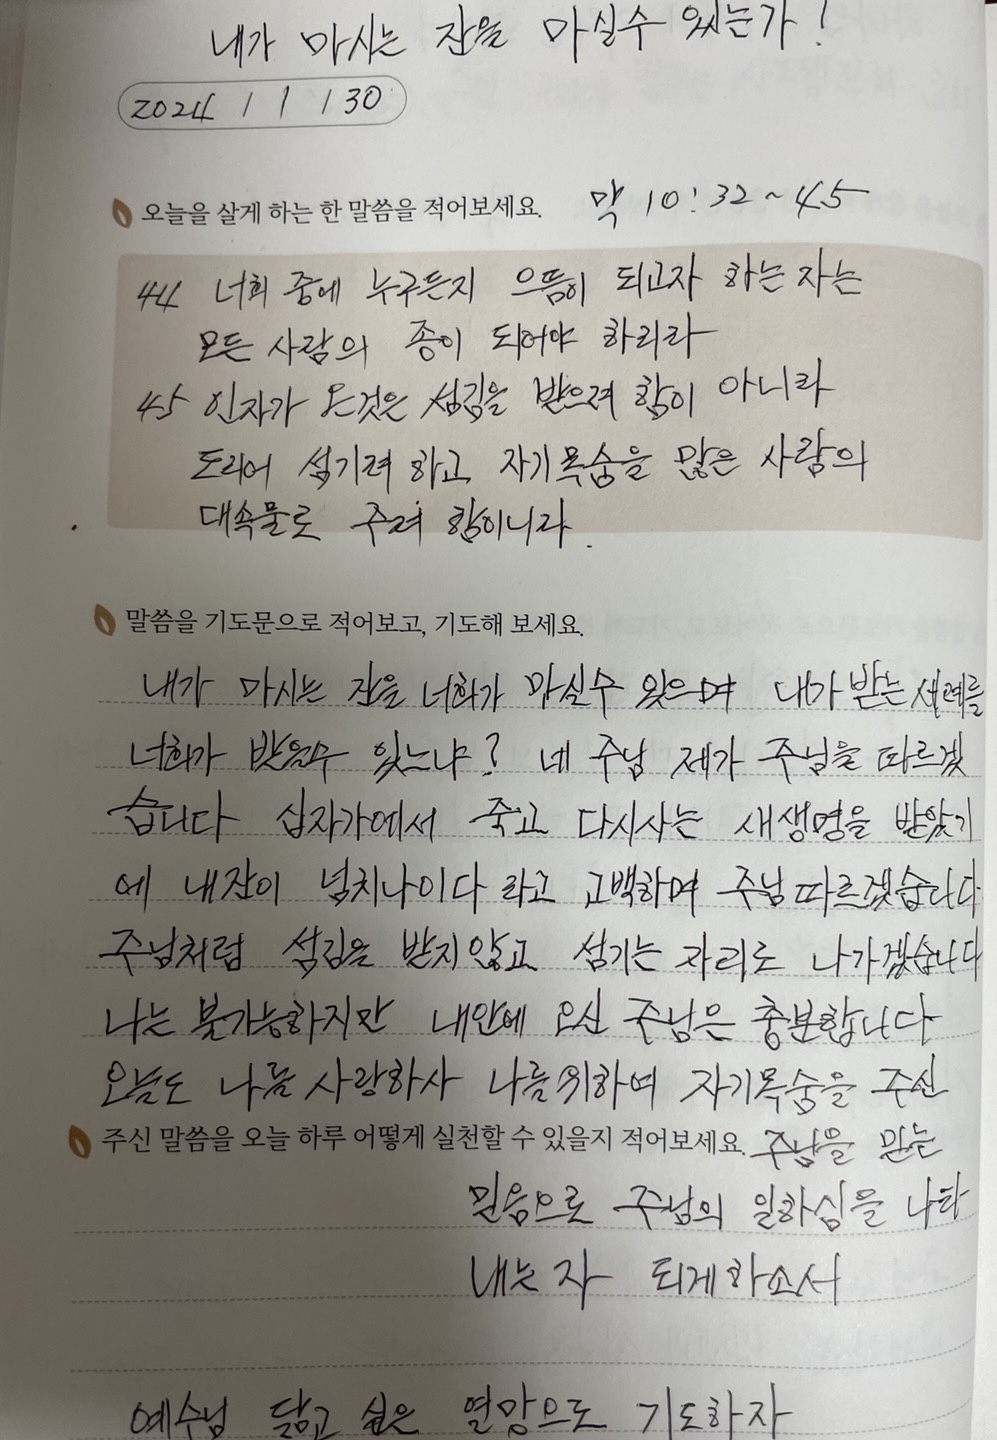 내가 마시는 잔을 마실수 있는가!
2024 / 1 / 30
오늘을 살게 하는 한 말씀을 적어보세요. 막 10:32~45
44 너희 중에 누구든지 으뜸이 되고자 하는 자는
모든 사람의 종이 되어야 하리라
45 인자가 온것은 섬김을 받으려 함이 아니라
도리어 섬기려 하고 자기목숨을 많은 사람의
대속물로 주려 함이니라.
말씀을 기도문으로 적어보고, 기도해 보세요.
내가 마시는 잔을 너희가 마실수 있으며 내가 받는 세례를
너희가 받을수 있느냐? 네 주님 제가 주님을 따르겠
습니다 십자가에서 죽고 다시사는 새생명을 받았기
에 내잔이 넘치나이다 라고 고백하며 주님 따르겠습니다
주님처럼 섬김을 받지않고 섬기는 자리로 나가겠습니다
나는 불가능하지만 내안에 오신 주님은 충분합니다
오늘도 나를 사랑하사 나를위하여 자기목숨을 주신
주신 말씀을 오늘 하루 어떻게 실천할 수 있을지 적어보세요. 주님을 믿는
믿음으로 주님의 일하심을 나타
내는 자 되게하소서
예수님 닮고 싶은 열망으로 기도하자